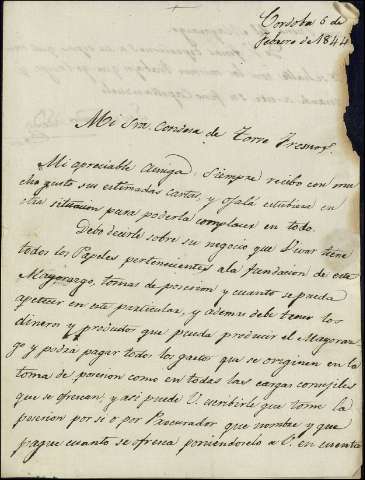 Cordoba 5 de
Febrero de 1844
Mi Sra. Condesa de Torre
Mi apreciable Amiga: Siempre recibo con mu
cho gusto sus estimadas cartas, y ojalá estubiese en
otra situacion para poderla complacer en todo.
Debo decirle sobre su negocio que tiene
todos los Papeles pertenecientes ala fundacion de este
Mayorazgo, tomas de posecion y cuanto se pueda
apetecer en este particular, y ademas debe tener los
dinero y productos que pueda producir el Mayoraz
go y podra pagar todo los gastos que se originen en la
toma de posecion como en todas las cargas consejiles
que se ofrecan, y asi puede V. escribirle que tome la
posecion por si o por Procurador que nombre y que
pague cuanto se ofresca poniendoselo a V. en cuenta